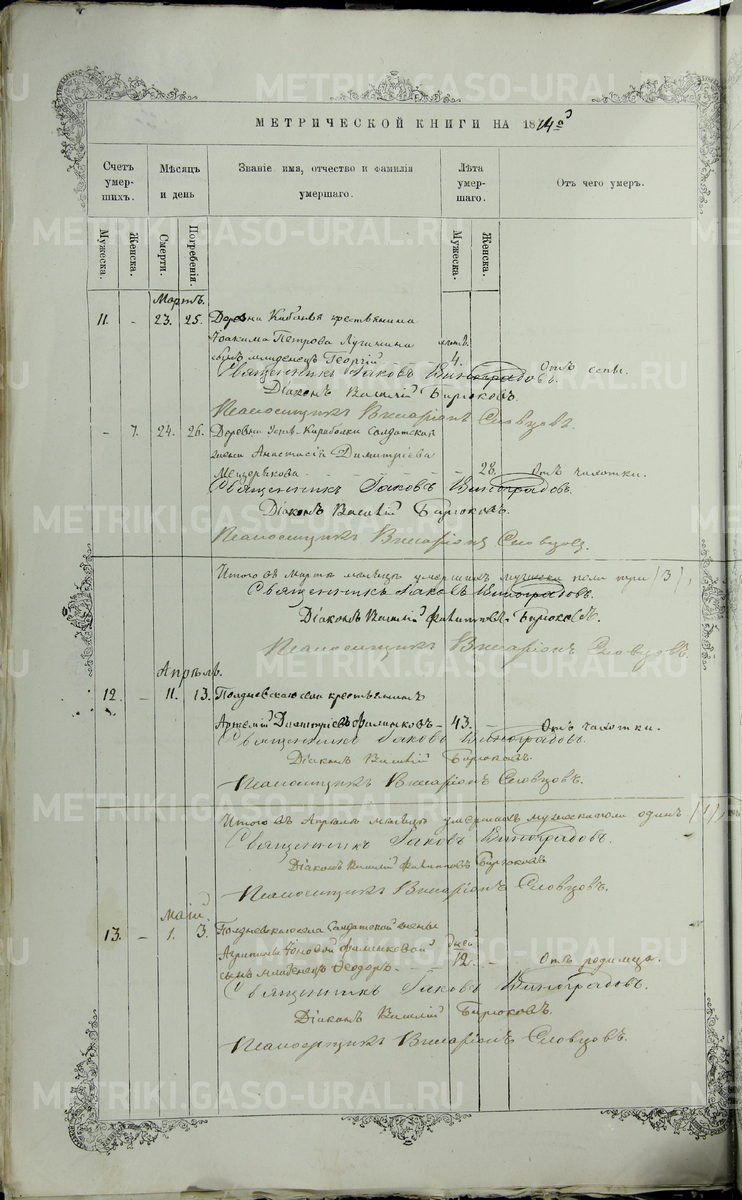 МЕТРИЧЕСКОЙ КНИГИ НА 1874й
Счетъ умер-шихъ. Мѣсяцъ и день Званіе имя, отчество и фамилія умершаго. Лѣта умер-шаго. Отъ чего умеръ.
Мужеска. Женска. Смерти. Погребенія. Мужеска. Женска.
Мартъ.
11. - 23. 25. Деревни Кабанья крестьянина
Іоакима Петрова Лучинина
сынъ младенецъ Георгій 4. Отъ оспы.
Священникъ Іаковъ Виноградовъ.
Діаконъ Василій Бирюковъ.
Псаломщикъ Виссаріонъ Словцовъ.
- 7. 24. 26. Деревни Усть-Караболки Солдатская
жена Анастасія Димитріева
Мещерякова 28. Отъ чахотки.
Священникъ Іаковъ Виноградовъ.
Діаконъ Василій Бирюковъ.
Псаломщикъ Виссаріонъ Словцовъ.
Итого въ Мартѣ мѣсяцѣ умершихъ мужеска пола три (3),
Священникъ Іаковъ Виноградовъ.
Діаконъ Василій Филипповъ Бирюковъ.
Псаломщикъ Виссаріонъ Словцовъ.
Апрѣль.
12. - 11. 13. Полдневскаго села крестьянинъ
Артемій Димитріевъ Филинковъ - 43. - Отъ чахотки.
Священникъ Іаковъ Виноградовъ.
Діаконъ Василій Бирюковъ.
Псаломщикъ Виссаріонъ Словцовъ.
Итого въ Апрѣлѣ мѣсяцѣ умершихъ мужеска пола одинъ (1),
Священникъ Іаковъ Виноградовъ.
Діаконъ Василій Филипповъ Бирюковъ
Псаломщикъ Виссаріонъ Словцовъ.
Маій.
13. - 1. 3. Полдневскаго села Солдатской жены
Агрипины Іоновой Филинковой дней
сынъ младенецъ Ѳеодоръ 12. - Отъ родимца.
Священникъ Іаковъ Виноградовъ.
Діаконъ Василій Бирюковъ.
Псаломщикъ Виссаріонъ Словцовъ.
METRIKI.GASO-URAL.RU